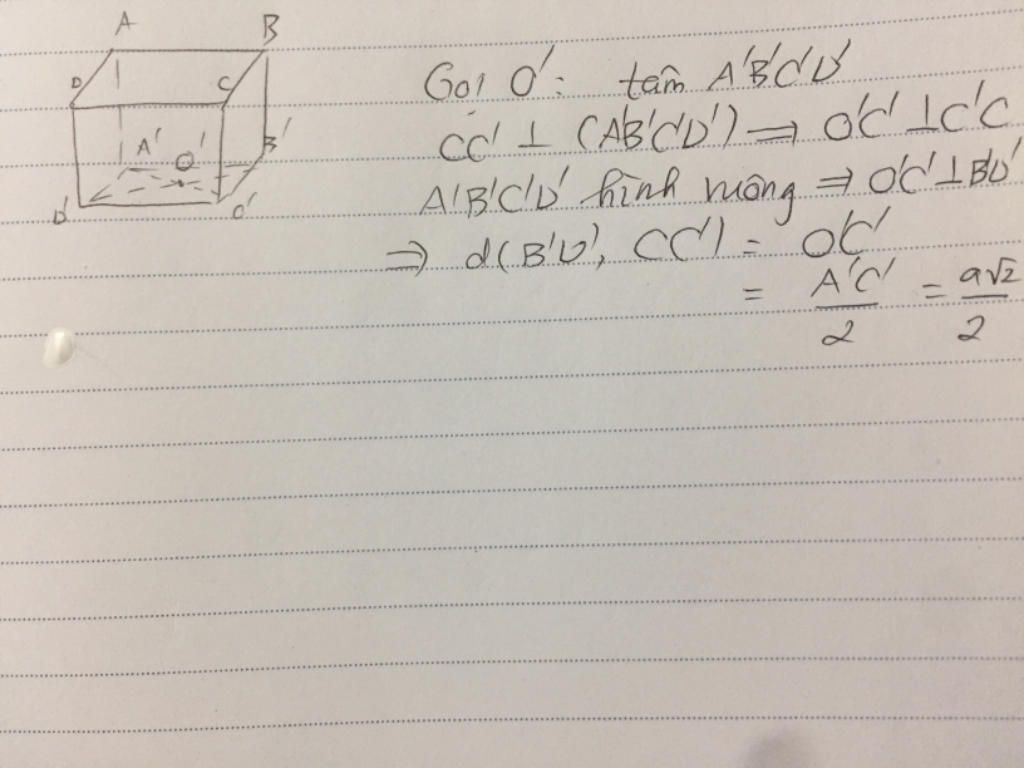 A
B
D
C
A'
O'
B'
D'
C'
Gọi O': tâm A'B'C'D'
CC' ⊥ (A'B'C'D') ⇒ O'C' ⊥ C'C
A'B'C'D' hình vuông ⇒ O'C' ⊥ B'D'
⇒ d(B'D', CC') = O'C'
= A'C'/2 = a√2/2